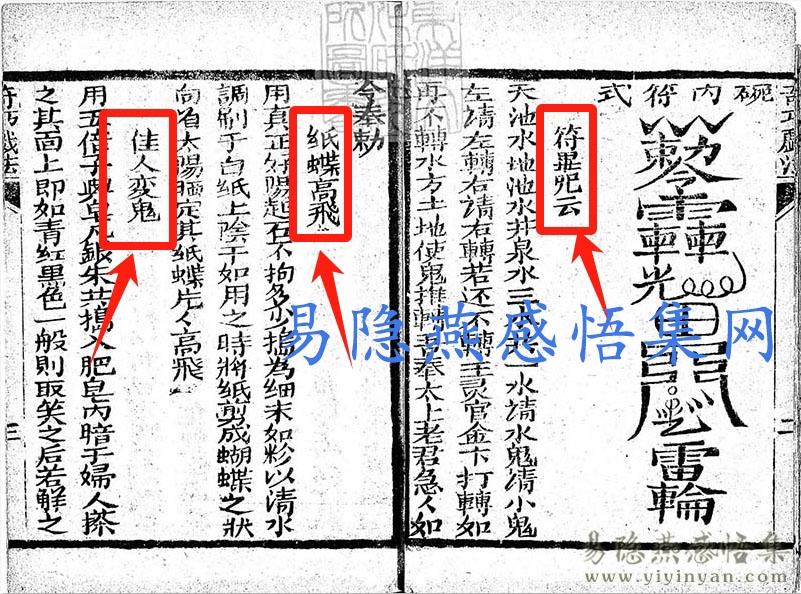 碗内符式
雷輪
符畢咒云
天池水地池水井泉水三水共一水請水鬼請小鬼
左請左轉右請右轉若还不轉王灵官金卞打轉如
再不轉水方土地使鬼推轉
奉太上老君急人如
令奉勅
纸蝶高飛
用真正好陽起石不拘多少搗為细末如粉以清水
調刷于白纸上陰干如用之時將纸剪成蝴蝶之狀
向
太陽晒定其纸蝶片人高飛
佳人変鬼
用五倍子
皂凡銀朱共搗入肥皂內暗于婦人搽
之其面上即如青红黑色一般則取笑之后若解之
奇巧戲法
二
三
易隐燕感悟集网
易隐燕感悟集
www.yiyinyan.com